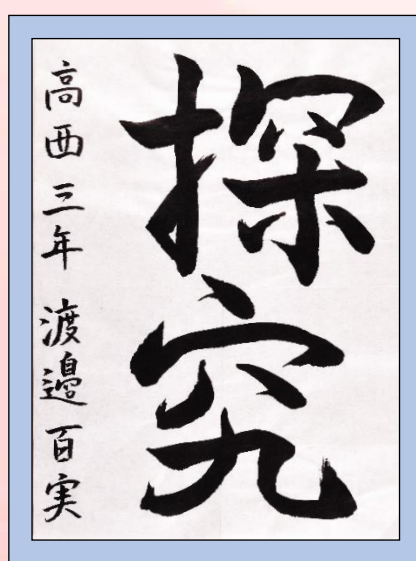 探究
高西三年 渡邉百実